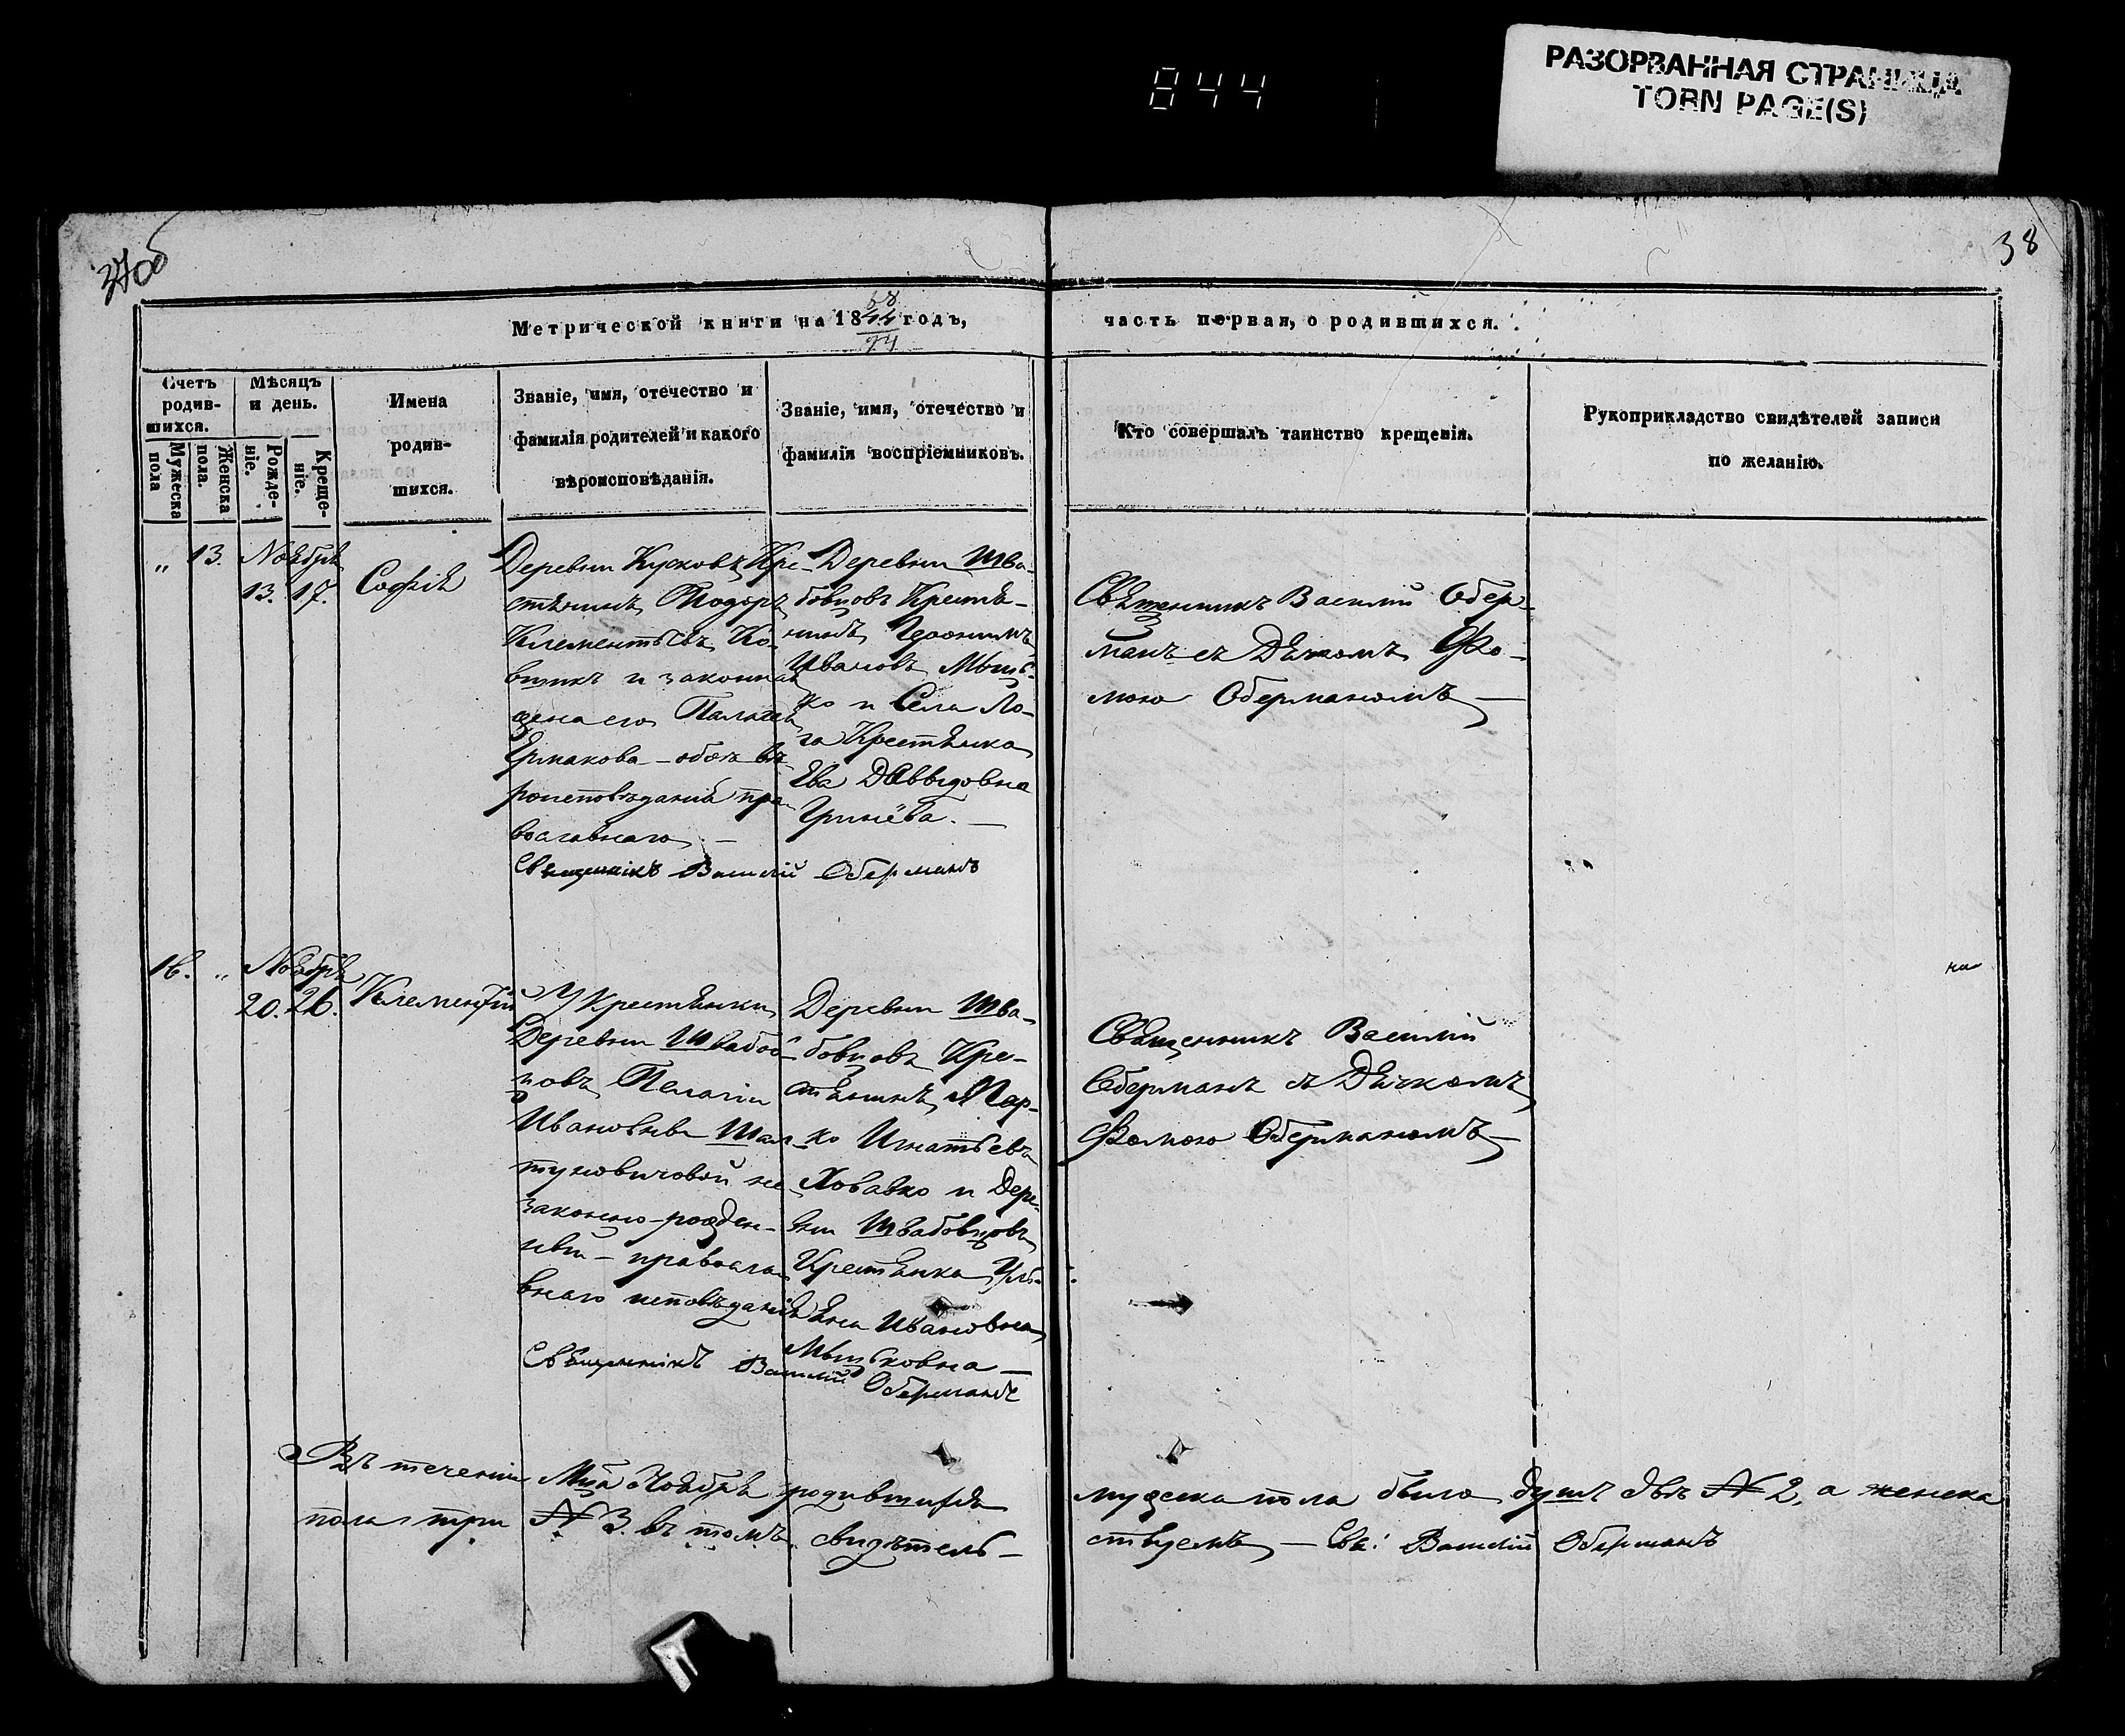 844
РАЗОРВАННАЯ СТРАНИЦА
TORN PAGE(S)
37об
38
Метрической книги на 1844 годъ,
часть первая, о родившихся.
Счетъ родив-шихся.
Мужеска пола
Женска пола.
Мѣсяцъ и день.
Рожде-ніе.
Креще-ніе.
Имена
родив-
шихся.
Званіе, имя, отечество и
фамилія родителей и какого
вѣроисповѣданія.
Званіе, имя, отечество и
фамилія воспріемниковъ.
Кто совершалъ таинство крещенія.
Рукоприкладство свидѣтелей записи
по желанію.
„ 13. Ноября
13. 17.
Софія
Деревни Кусковъ Кре-
стянинъ Тодоръ
Клементьевъ Ко-
вшикъ и законная
жена его
Ермакова – обоя вѣ-
роисповѣданія пра-
вославнаго. –
Священникъ Василій Оберманъ
Деревни Шва-
бовцовъ Крестя-
нинъ Иеронимъ
Ивановъ Мыш-
ко и Села Ло-
га Крестянка
Ева Даввидовна
Гринёва. –
Священникъ Василий Обер-
манъ съ Дячкомъ Фо-
мою Оберманомъ –
16. „ Ноября
20. 26.
Клементий
У Крестянки
Деревни Швабов-
цовъ Пелагіи
Ивановны Шал-
туновичовой не-
законно-рожден-
ный – правосла-
внаго исповѣданія
Священникъ Василий Оберманъ
Деревни Шва-
бовцовъ Кре-
стянинъ Мар-
ко Игнатьевъ
Ховавко и Дере-
вни Швабовцовъ
Крестянка Уль-
яна Ивановна
Мышковна –
Священникъ Василий
Оберманъ съ Дячкомъ
Фомою Оберманомъ –
Въ теченіи Мца Ноября родившихся
мужеска пола было душъ двѣ № 2, а женска
пола три № 3. въ томъ свидѣтель-
ствуемъ – Свя: Василий Оберманъ